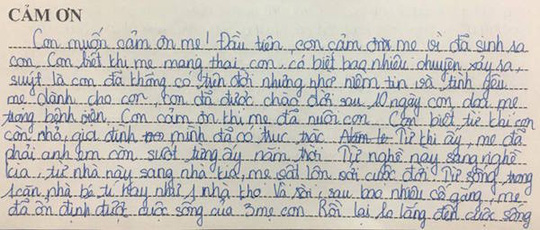 CẢM ƠN
Con muốn cảm ơn mẹ! Đầu tiên, con cảm ơn mẹ vì đã sinh ra
con. Con biết khi mẹ mang thai, con có biết bao nhiêu chuyện xảy ra,
suýt là con đã không có trên đời nhưng nhờ niềm tin và tình yêu
mẹ dành cho con, con đã được chào đời sau 10 ngày con đau mẹ
trong bệnh viện. Con cảm ơn khi mẹ đã nuôi con. Con biết từ khi con
còn nhỏ, gia đình mình đã có trục trặc. Từ khi ấy, mẹ đã
phải anh em con suốt từng ấy năm trời. Từ nghề này sang nghề
kia, từ nhà này sang nhà kia, mẹ bất lớn với cuộc đời. Từ sống trong
1 căn nhà bé tí hay như 1 nhà kho. Và rồi, sau bao nhiêu cố gắng, mẹ
đã ổn định được cuộc sống của 3 mẹ con. Rồi lại lo lắng đến cuộc sống